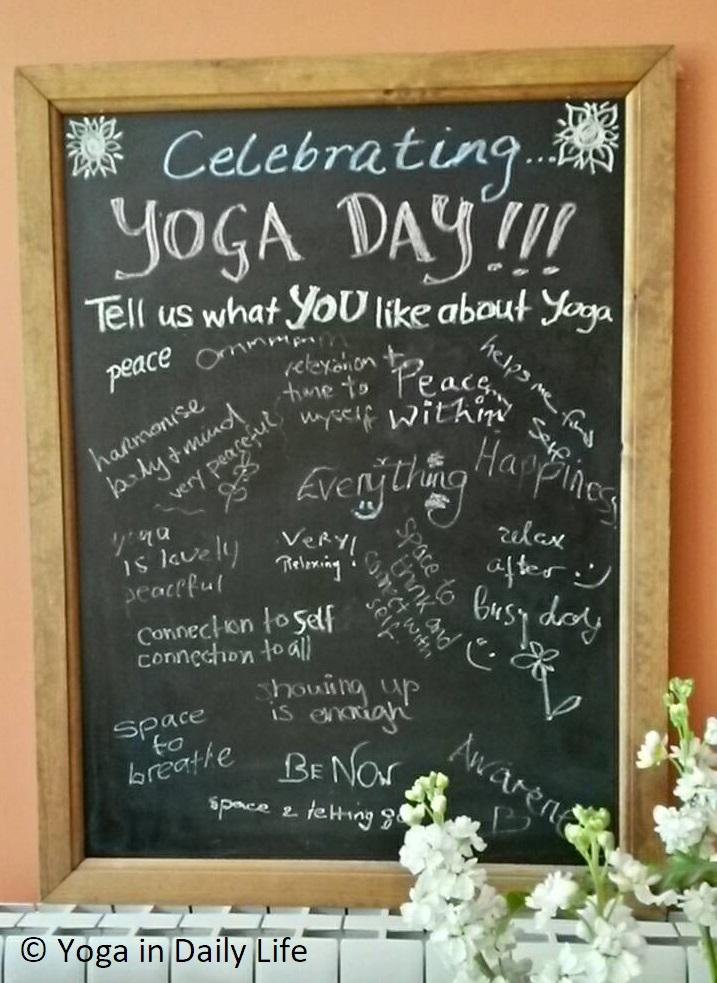 Celebrating...
YOGA DAY!!!
Tell us what YOU like about Yoga
peace
Ommmmm
relaxation +
time to
myself
Peace
within
helps me find
Self
harmonise
body + mind
very peaceful
Everything
Happiness
yoga
is lovely
peaceful
Very!
Relaxing!
space to
think and
connect with
self
relax
after :)
busy day
connection to self
connection to all
showing up
is enough
space
to
breathe
BE NOW
Awarene
space 2 letting go
© Yoga in Daily Life